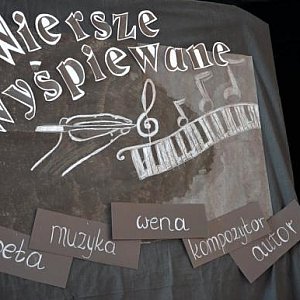 Wiersze
Wyśpiewane
muzyka
wena
kompozytor
autor